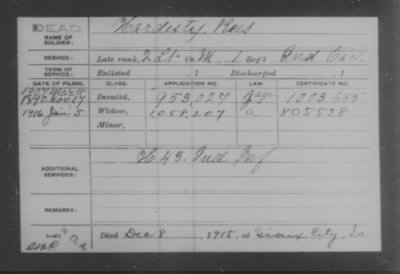 DEAD
NAME OF
SOLDIER:
Hardesty,
SERVICE:
Late rank, 2 Lt Co. M, 1 Reg't Ind Cav.
TERM OF
SERVICE:
Enlisted , 1 Discharged , 1
DATE OF FILING. CLASS. APPLICATION NO. LAW. CERTIFICATE NO.
Invalid, 953,027 1003,685
1916 Jan 5 Widow, 1058,207 805528
Minor,
ADDITIONAL
SERVICES:
H 43, Ind Inf
REMARKS:
Died Dec 8 , 1915, at Sioux City, Ia